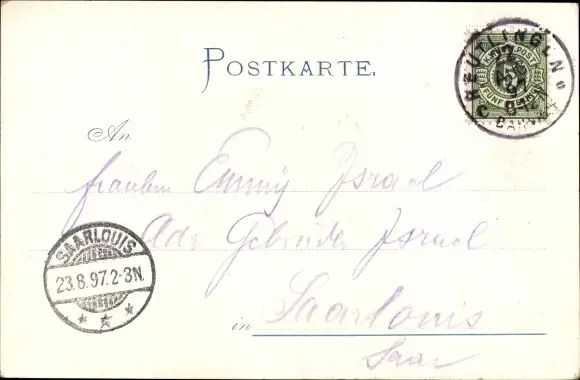 POSTKARTE.
REUTLINGEN
K. WÜRTT. POST
5
FÜNF PFENNIG
An
Fräulein Emmy Israel
Adr Gebrüder Israel
SAARLOUIS
23.8.97.2-3N.
in Saarlouis
Saar